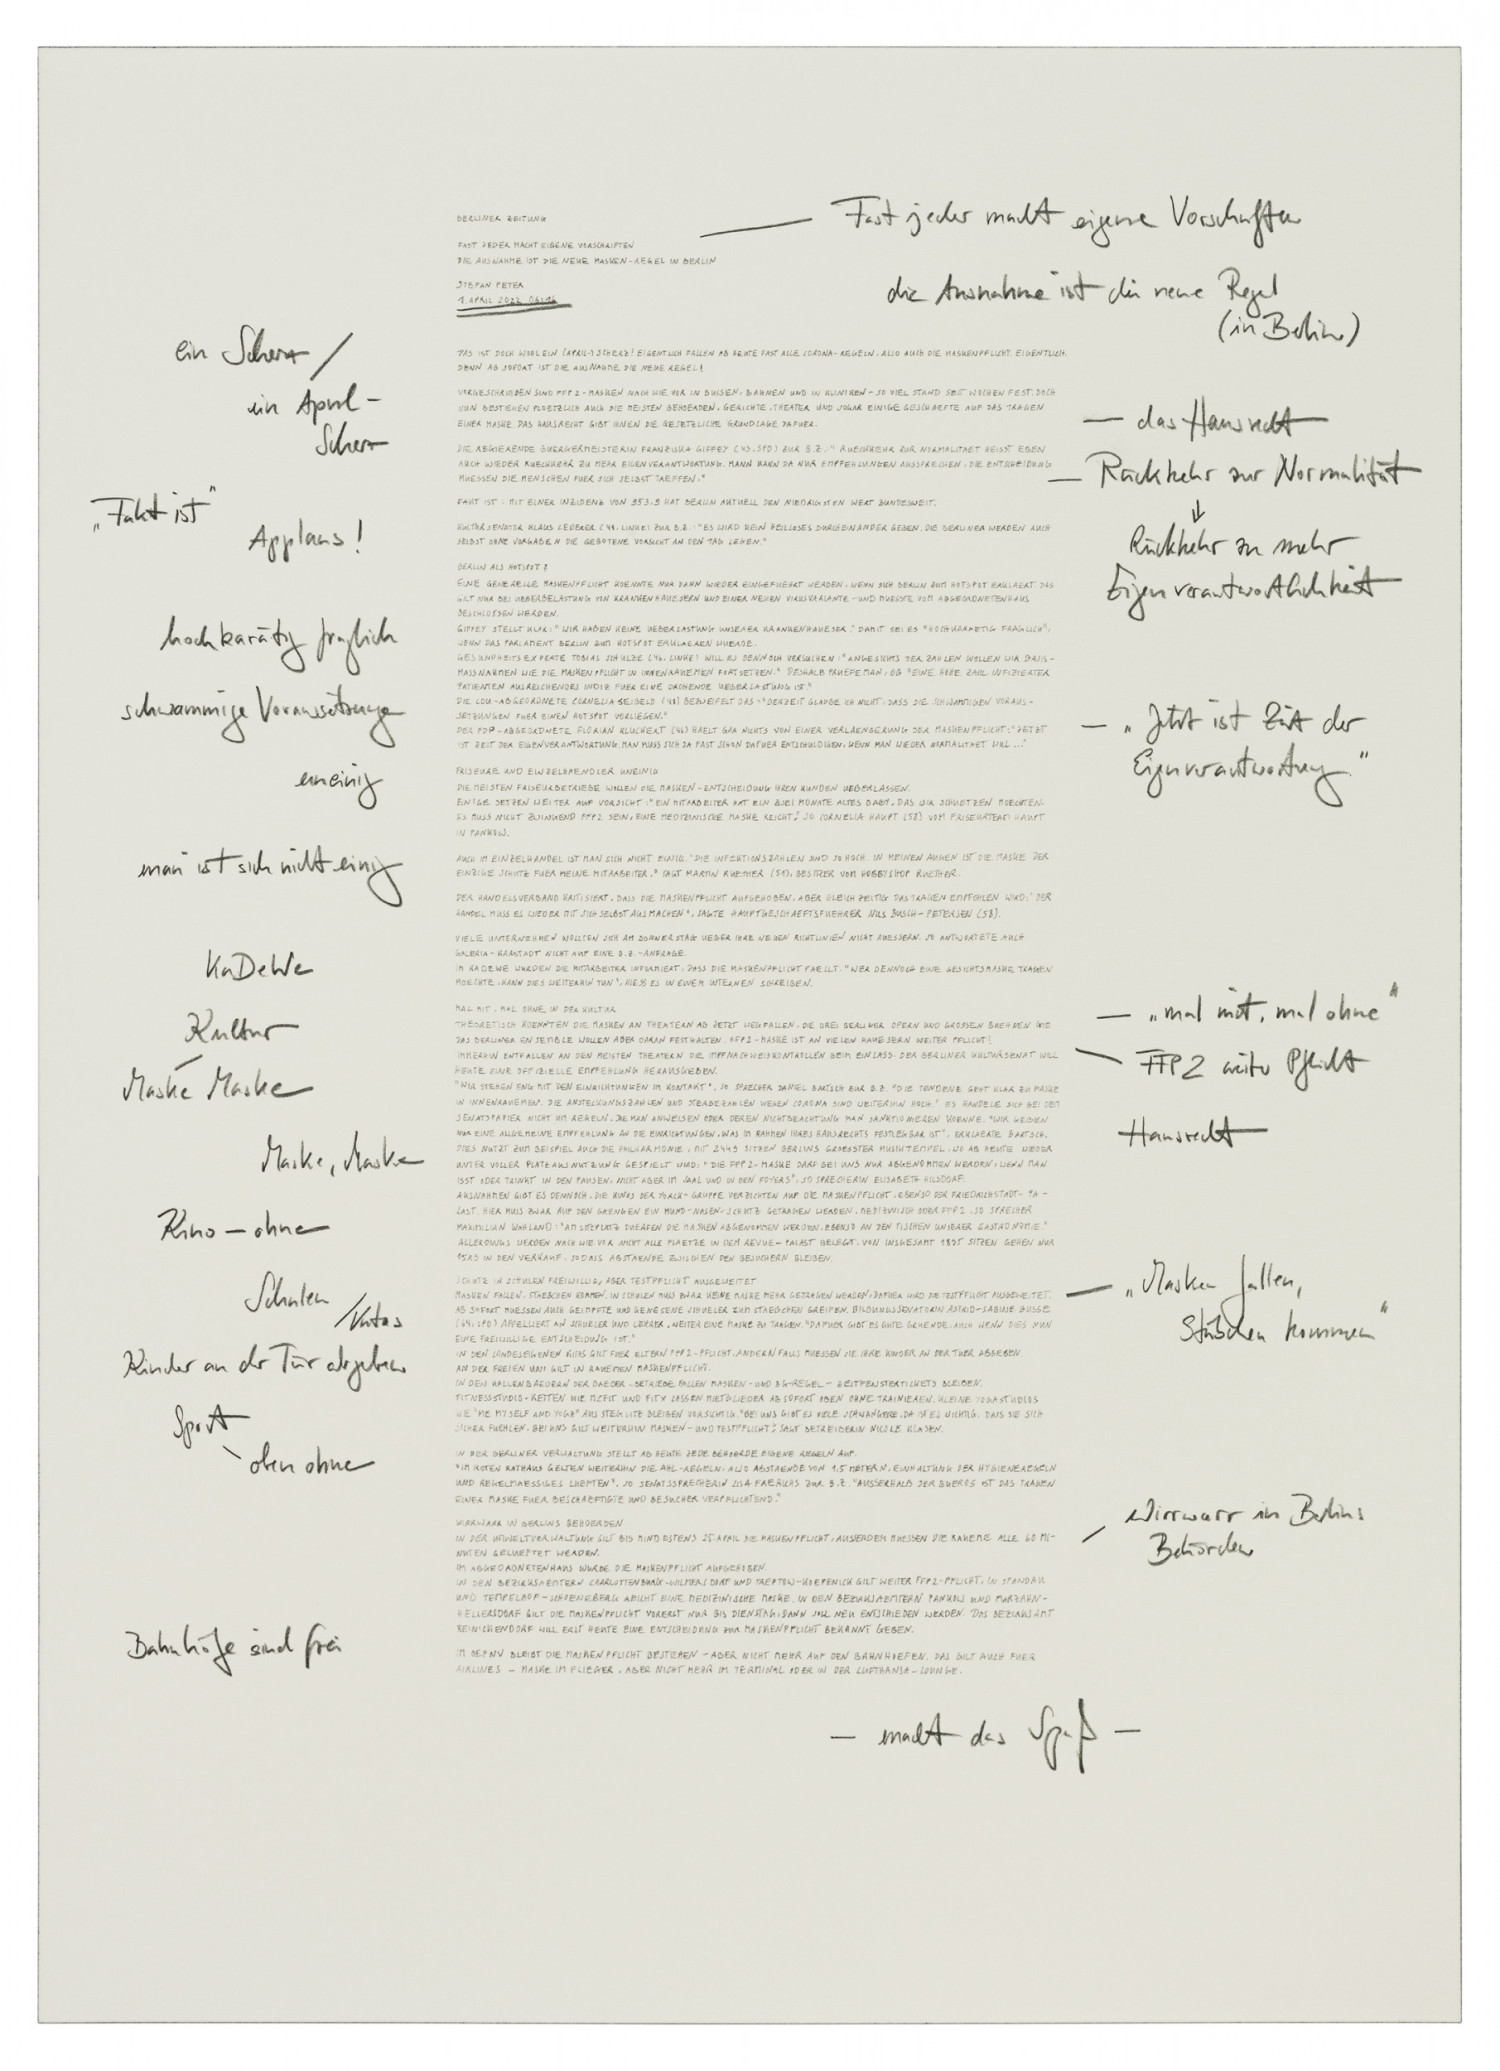 BERLINER ZEITUNG
FAST JEDER MACHT EIGENE VORSCHRIFTEN
DIE AUSNAHME IST DIE NEUE MASKEN-REGEL IN BERLIN
STEFAN PETER
1. APRIL 2022
Fast jeder macht eigene Vorschriften
die Ausnahme ist die neue Regel
(in Berlin)
ein Scherz /
ein April-
Scherz
DAS IST DOCH WOHL EIN (APRIL-) SCHERZ! EIGENTLICH FALLEN AB HEUTE FAST ALLE CORONA-REGELN, ALSO AUCH DIE MASKENPFLICHT. EIGENTLICH.
DENN AB SOFORT IST DIE AUSNAHME DIE NEUE REGEL!
VORGESCHRIEBEN SIND FFP2-MASKEN NACH WIE VOR IN BUSSEN, BAHNEN UND IN KLINIKEN - SO VIEL STAND SEIT WOCHEN FEST. DOCH
NUN BESTEHEN PLOETZLICH AUCH DIE MEISTEN BEHOERDEN, GERICHTE, THEATER UND SOGAR EINIGE GESCHAEFTE AUF DAS TRAGEN
EINER MASKE. DAS HAUSRECHT GIBT IHNEN DIE GESETZLICHE GRUNDLAGE DAFUER.
— das Hausrecht
DIE REGIERENDE BUERGERMEISTERIN FRANZISKA GIFFEY (43, SPD) ZUR B.Z.: "RUECKKEHR ZUR NORMALITAET HEISST EBEN
AUCH WIEDER RUECKKEHR ZU MEHR EIGENVERANTWORTUNG. MANN KANN DA NUR EMPFEHLUNGEN AUSSPRECHEN, DIE ENTSCHEIDUNG
MUESSEN DIE MENSCHEN FUER SICH SELBST TREFFEN."
— Rückkehr zur Normalität
↓
Rückkehr zu mehr
Eigenverantwortlichkeit
„Fakt ist"
Applaus!
FAKT IST: MIT EINER INZIDENZ VON 953.9 HAT BERLIN AKTUELL DEN NIEDRIGSTEN WERT BUNDESWEIT.
KULTURSENATOR KLAUS LEDERER (48, LINKE) ZUR B.Z.: "ES WIRD KEIN HEILLOSES DURCHEINANDER GEBEN. DIE BERLINER WERDEN AUCH
SELBST OHNE VORGABEN DIE GEBOTENE VORSICHT AN DEN TAG LEGEN."
BERLIN ALS HOTSPOT?
EINE GENERELLE MASKENPFLICHT KOENNTE NUR DANN WIEDER EINGEFUEHRT WERDEN, WENN SICH BERLIN ZUM HOTSPOT ERKLAERT. DAS
GILT NUR BEI UEBERBELASTUNG VON KRANKENHAEUSERN UND EINER NEUEN VIRUSVARIANTE - UND MUESSTE VOM ABGEORDNETENHAUS
BESCHLOSSEN WERDEN.
GIFFEY STELLT KLAR: "WIR HABEN KEINE UEBERLASTUNG UNSERER KRANKENHAEUSER." DAMIT SEI ES "HOCHKARAETIG FRAGLICH",
WENN DAS PARLAMENT BERLIN ZUM HOTSPOT ERKLAEREN WUERDE.
GESUNDHEITSEXPERTE TOBIAS SCHULZE (46, LINKE) WILL ES DENNOCH VERSUCHEN: "ANGESICHTS DER ZAHLEN WOLLEN WIR BASIS-
MASSNAHMEN WIE DIE MASKENPFLICHT IN INNENRAEUMEN FORTSETZEN." DESHALB PRUEFE MAN, OB "EINE HOHE ZAHL INFIZIERTER
PATIENTEN AUSREICHENDES INDIZ FUER EINE DROHENDE UEBERLASTUNG IST."
DIE CDU-ABGEORDNETE CORNELIA SEIBELD (48) BEZWEIFELT DAS: "DERZEIT GLAUBE ICH NICHT, DASS DIE SCHWAMMIGEN VORAUS-
SETZUNGEN FUER EINEN HOTSPOT VORLIEGEN."
DER FDP-ABGEORDNETE FLORIAN KLUCKERT (46) HAELT GAR NICHTS VON EINER VERLAENGERUNG DER MASKENPFLICHT: "JETZT
IST ZEIT DER EIGENVERANTWORTUNG. MAN MUSS SICH JA FAST SCHON DAFUER ENTSCHULDIGEN, WENN MAN WIEDER NORMALITAET WILL ..."
hochkarätig fraglich
schwammige Voraussetzungen
— „Jetzt ist Zeit der
Eigenverantwortung."
uneinig
FRISEURE UND EINZELHAENDLER UNEINIG
DIE MEISTEN FRISEURBETRIEBE WOLLEN DIE MASKEN-ENTSCHEIDUNG IHREN KUNDEN UEBERLASSEN.
EINIGE SETZEN WEITER AUF VORSICHT: "EIN MITARBEITER HAT EIN ZWEI MONATE ALTES BABY, DAS WIR SCHUETZEN MOECHTEN.
ES MUSS NICHT ZWINGEND FFP2 SEIN, EINE MEDIZINISCHE MASKE REICHT", SO CORNELIA HAUPT (58) VOM FRISEURTEAM HAUPT
IN PANKOW.
man ist sich nicht einig
AUCH IM EINZELHANDEL IST MAN SICH NICHT EINIG. "DIE INFEKTIONSZAHLEN SIND SO HOCH. IN MEINEN AUGEN IST DIE MASKE DER
EINZIGE SCHUTZ FUER MEINE MITARBEITER." SAGT MARTIN RUETHER (51), BESITZER VOM HOBBYSHOP RUETHER.
DER HANDELSVERBAND KRITISIERT, DASS DIE MASKENPFLICHT AUFGEHOBEN, ABER GLEICHZEITIG DAS TRAGEN EMPFOHLEN WIRD: "DER
HANDEL MUSS ES WIEDER MIT SICH SELBST AUSMACHEN", SAGTE HAUPTGESCHAEFTSFUEHRER NILS BUSCH-PETERSEN (58).
VIELE UNTERNEHMEN WOLLTEN SICH AM DONNERSTAG UEBER IHRE NEUEN RICHTLINIEN NICHT AEUSSERN. SO ANTWORTETE AUCH
GALERIA-KARSTADT NICHT AUF EINE B.Z.-ANFRAGE.
IM KADEWE WURDEN DIE MITARBEITER INFORMIERT, DASS DIE MASKENPFLICHT FAELLT. "WER DENNOCH EINE GESICHTSMASKE TRAGEN
MOECHTE, KANN DIES WEITERHIN TUN", HIESS ES IN EINEM INTERNEN SCHREIBEN.
KaDeWe
Kultur
Maske Maske
Maske, Maske
Kino — ohne
— „mal mit, mal ohne"
FFP2 weiter Pflicht
Hausrecht
MAL MIT, MAL OHNE IN DER KULTUR
THEORETISCH KOENNTEN DIE MASKEN AN THEATERN AB JETZT WEGFALLEN. DIE DREI BERLINER OPERN UND GROSSEN BUEHNEN WIE
DAS BERLINER ENSEMBLE WOLLEN ABER DARAN FESTHALTEN. FFP2-MASKE IST AN VIELEN HAEUSERN WEITER PFLICHT!
IMMERHIN ENTFALLEN AN DEN MEISTEN THEATERN DIE IMPFNACHWEISKONTROLLEN BEIM EINLASS. DER BERLINER KULTURSENAT WILL
HEUTE EINE OFFIZIELLE EMPFEHLUNG HERAUSGEBEN.
"WIR STEHEN ENG MIT DEN EINRICHTUNGEN IM KONTAKT", SO SPRECHER DANIEL BARTSCH ZUR B.Z. "DIE TENDENZ GEHT KLAR ZU MASKE
IN INNENRAEUMEN. DIE ANSTECKUNGSZAHLEN UND STERBEZAHLEN WEGEN CORONA SIND WEITERHIN HOCH." ES HANDELE SICH BEI DEM
SENATSPAPIER NICHT UM REGELN, DIE MAN ANWEISEN ODER DEREN NICHTBEACHTUNG MAN SANKTIONIEREN KOENNE. "WIR GEBEN
NUR EINE ALLGEMEINE EMPFEHLUNG AN DIE EINRICHTUNGEN, WAS IM RAHMEN IHRES HAUSRECHTS FESTLEGBAR IST", ERKLAERTE BARTSCH.
DIES NUTZT ZUM BEISPIEL AUCH DIE PHILHARMONIE, MIT 2449 SITZEN BERLINS GROESSTER MUSIKTEMPEL, WO AB HEUTE WIEDER
UNTER VOLLER PLATZAUSNUTZUNG GESPIELT WIRD: "DIE FFP2-MASKE DARF BEI UNS NUR ABGENOMMEN WERDEN, WENN MAN
ISST ODER TRINKT IN DEN PAUSEN, NICHT ABER IM SAAL UND IN DEN FOYERS", SO SPRECHERIN ELISABETH HILSDORF.
AUSNAHMEN GIBT ES DENNOCH. DIE KINOS DER YORCK-GRUPPE VERZICHTEN AUF DIE MASKENPFLICHT, EBENSO DER FRIEDRICHSTADT-PA-
LAST. HIER MUSS ZWAR AUF DEN GAENGEN EIN MUND-NASEN-SCHUTZ GETRAGEN WERDEN, MEDIZINISCH ODER FFP2. SO SPRECHER
MAXIMILIAN WOHLAND: "AM SITZPLATZ DUERFEN DIE MASKEN ABGENOMMEN WERDEN, EBENSO AN DEN TISCHEN UNSERER GASTRONOMIE."
ALLERDINGS WERDEN NACH WIE VOR NICHT ALLE PLAETZE IN DEM REVUE-PALAST BELEGT. VON INSGESAMT 1895 SITZEN GEHEN NUR
IN DEN VERKAUF, SODASS ABSTAENDE ZWISCHEN DEN BESUCHERN BLEIBEN.
Schulen
/Kitas
Kinder an der Tür abgeben
Sport
oben ohne
— „Masken fallen,
Stäbchen kommen"
SCHUTZ IN SCHULEN FREIWILLIG, ABER TESTPFLICHT AUSGEWEITET
MASKEN FALLEN, STAEBCHEN KOMMEN. IN SCHULEN MUSS ZWAR KEINE MASKE MEHR GETRAGEN WERDEN, DAFUER WIRD DIE TESTPFLICHT AUSGEWEITET.
AB SOFORT MUESSEN AUCH GEIMPFTE UND GENESENE SCHUELER ZUM STAEBCHEN GREIFEN. BILDUNGSSENATORIN ASTRID-SABINE BUSSE
(64, SPD) APPELLIERT AN SCHUELER UND LEHRER, WEITER EINE MASKE ZU TRAGEN. "DAFUER GIBT ES GUTE GRUENDE, AUCH WENN DIES NUN
EINE FREIWILLIGE ENTSCHEIDUNG IST."
IN DEN LANDESEIGENEN KITAS GILT FUER ELTERN FFP2-PFLICHT, ANDERNFALLS MUESSEN SIE IHRE KINDER AN DER TUER ABGEBEN.
AN DER FREIEN UNI GILT IN RAEUMEN MASKENPFLICHT.
IN DEN HALLENBAEDERN DER BAEDER-BETRIEBE FALLEN MASKEN- UND 3G-REGEL - ZEITFENSTERTICKETS BLEIBEN.
FITNESSSTUDIO-KETTEN WIE MCFIT UND FITX LASSEN MITGLIEDER AB SOFORT OBEN OHNE TRAINIEREN. KLEINE YOGASTUDIOS
WIE "ME MYSELF AND YOGA" AUS STEGLITZ BLEIBEN VORSICHTIG. "BEI UNS GIBT ES VIELE SCHWANGERE, DA IST ES WICHTIG, DASS SIE SICH
SICHER FUEHLEN. BEI UNS GILT WEITERHIN MASKEN- UND TESTPFLICHT", SAGT BETREIBERIN NICOLE KLASEN.
IN DER BERLINER VERWALTUNG STELLT AB HEUTE JEDE BEHOERDE EIGENE REGELN AUF.
"IM ROTEN RATHAUS GELTEN WEITERHIN DIE AHL-REGELN, ALSO ABSTAENDE VON 1,5 METERN, EINHALTUNG DER HYGIENEREGELN
UND REGELMAESSIGES LUEFTEN", SO SENATSSPRECHERIN LISA FRERICHS ZUR B.Z. "AUSSERHALB DER BUEROS IST DAS TRAGEN
EINER MASKE FUER BESCHAEFTIGTE UND BESUCHER VERPFLICHTEND."
Wirrwarr in Berlins
Behörden
WIRRWARR IN BERLINS BEHOERDEN
IN DER UMWELTVERWALTUNG GILT BIS MINDESTENS 25. APRIL DIE MASKENPFLICHT, AUSSERDEM MUESSEN DIE RAEUME ALLE 60 MI-
NUTEN GELUEFTET WERDEN.
IM ABGEORDNETENHAUS WURDE DIE MASKENPFLICHT AUFGEHOBEN.
IN DEN BEZIRKSAEMTERN CHARLOTTENBURG-WILMERSDORF UND TREPTOW-KOEPENICK GILT WEITER FFP2-PFLICHT, IN SPANDAU
UND TEMPELHOF-SCHOENEBERG REICHT EINE MEDIZINISCHE MASKE. IN DEN BEZIRKSAEMTERN PANKOW UND MARZAHN-
HELLERSDORF GILT DIE MASKENPFLICHT VORERST NUR BIS DIENSTAG, DANN SOLL NEU ENTSCHIEDEN WERDEN. DAS BEZIRKSAMT
REINICKENDORF WILL ERST HEUTE EINE ENTSCHEIDUNG ZUR MASKENPFLICHT BEKANNT GEBEN.
Bahnhöfe sind frei
IM OEPNV BLEIBT DIE MASKENPFLICHT BESTEHEN - ABER NICHT MEHR AUF DEN BAHNHOEFEN. DAS GILT AUCH FUER
AIRLINES - MASKE IM FLIEGER, ABER NICHT MEHR IM TERMINAL ODER IN DER LUFTHANSA-LOUNGE.
— macht das Spaß —